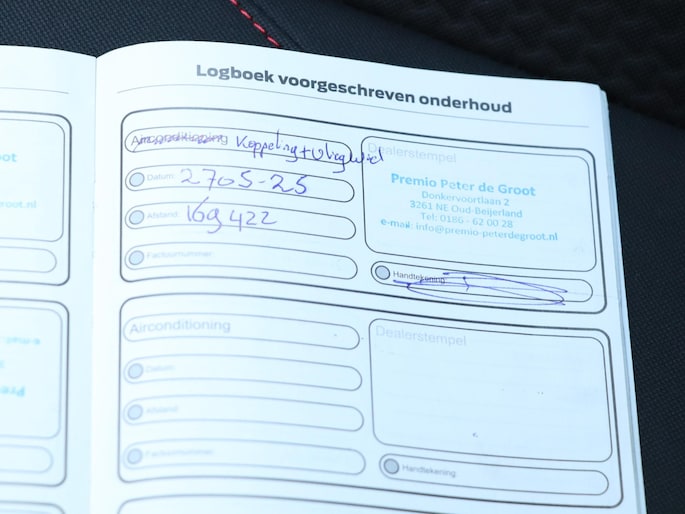 Logboek voorgeschreven onderhoud
Airconditioning Koppeling + Vliegwiel
Datum: 2705-25
Afstand: 169 422
Factuurnummer:
Dealerstempel
Premio Peter de Groot
Donkervoortlaan 2
3261 NE Oud-Beijerland
Tel: 0186 - 62 00 28
e-mail: info@premio-peterdegroot.nl
Handtekening
Airconditioning
Datum:
Afstand:
Factuurnummer:
Dealerstempel
Handtekening
oot
oot.nl
e-mai
Pre